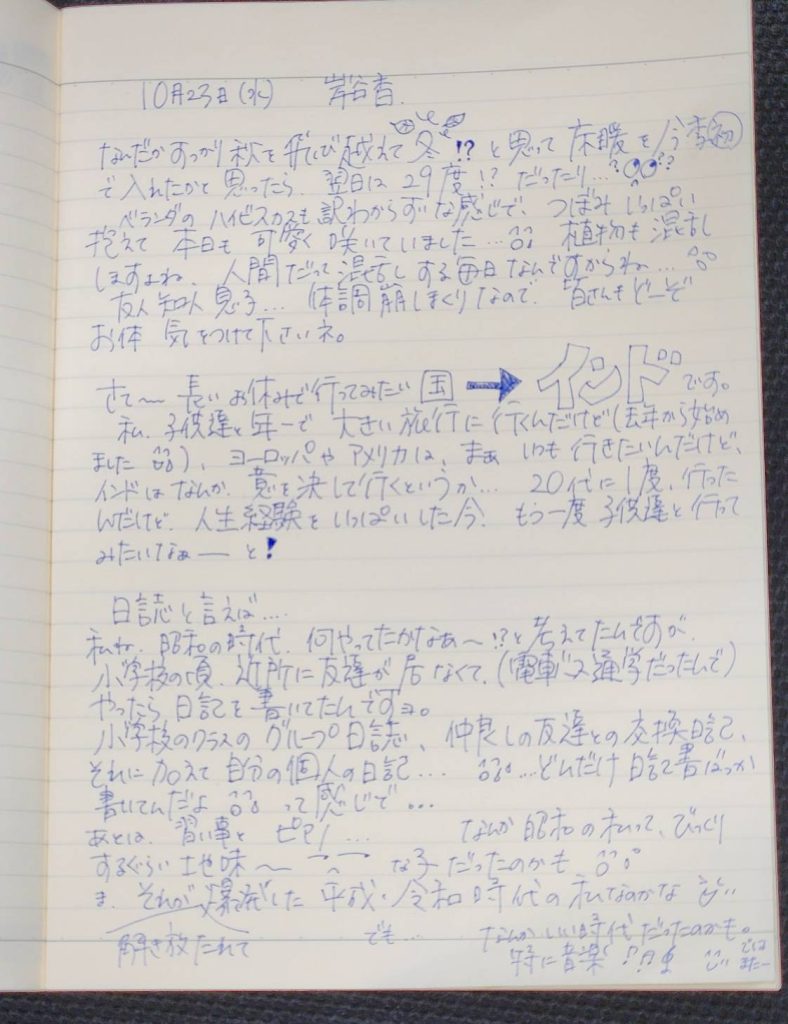 10月23日(水)　岸谷香.
なんだかすっかり秋を飛び越えて冬!?と思って床暖を今季初
で入れたかと思ったら、翌日は29度!?だったり...??
ベランダのハイビスカスも訳わからずな感じで、つぼみいっぱい
抱えて本日も可愛く咲いていました... 植物も混乱
しますよね、人間だって混乱する毎日なんですからね...
友人知人息子... 体調崩しまくりなので、皆さんもどーぞ
お体 気をつけて下さいネ。
さて〜 長いお休みで行ってみたい国→インドです。
私、子供達と年一で大きい旅行に行くんだけど(去年から始め
ました)、ヨーロッパやアメリカは、まぁいつも行きたいんだけど、
インドはなんか、意を決して行くというか... 20代に1度、行った
んだけど、人生経験をいっぱいした今、もう一度子供達と行って
みたいなぁーと!
日誌と言えば....
私ね、昭和の時代、何やってたかなぁ〜!?と考えてたんですが、
小学校の頃、近所に友達が居なくて、(電車通学だったんで)
やったら日記を書いてたんですョ。
小学校のクラスのグループ日誌、仲良しの友達との交換日記、
それに加えて自分の個人の日記... ...どんだけ日記書ばっか
書いてんだよ って感じで...
あとは、習い事とピアノ... なんか昭和の私って、びっくり
するぐらい地味〜 な子だったのかも
ま、それが爆発した平成・令和時代の私なのかな
解き放たれて
でも... なんかいい時代だったのかも。
特に音楽!?!?
では
また〜